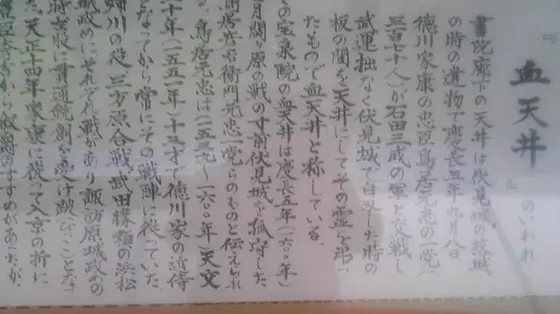 血天井
のいわれ
書院廊下の天井は伏見城の落城
の時の遺物で慶長五年九月八日
徳川家康の忠臣鳥居元忠の一党(
三百七十人)が石田三成の軍と交戦し
武運拙なく伏見城で自刃した時の
板の間を天井にしてその霊を弔っ
たもので血天井と称している。
の宝泉院の血天井は慶長五年(一六〇〇年)
月関ヶ原の戦の寸前伏見城を孤守した
居彦右衛門元忠一党らのものと伝えられ
鳥居元忠は(一五三九〜一六〇〇年)天文
二十年(一五五一年)十三才で徳川家の近侍
となってから常にその戦陣に従っていた
姉川の役三方原合戦、武田勝頼の浜松
城攻めにそれぞれ戦があり諏訪原城攻の
時左股に貫通銃創を受け跛(びっこ)とな
た。天正十四年家康に従って入京の折に
から叙爵のすすめがあったが、